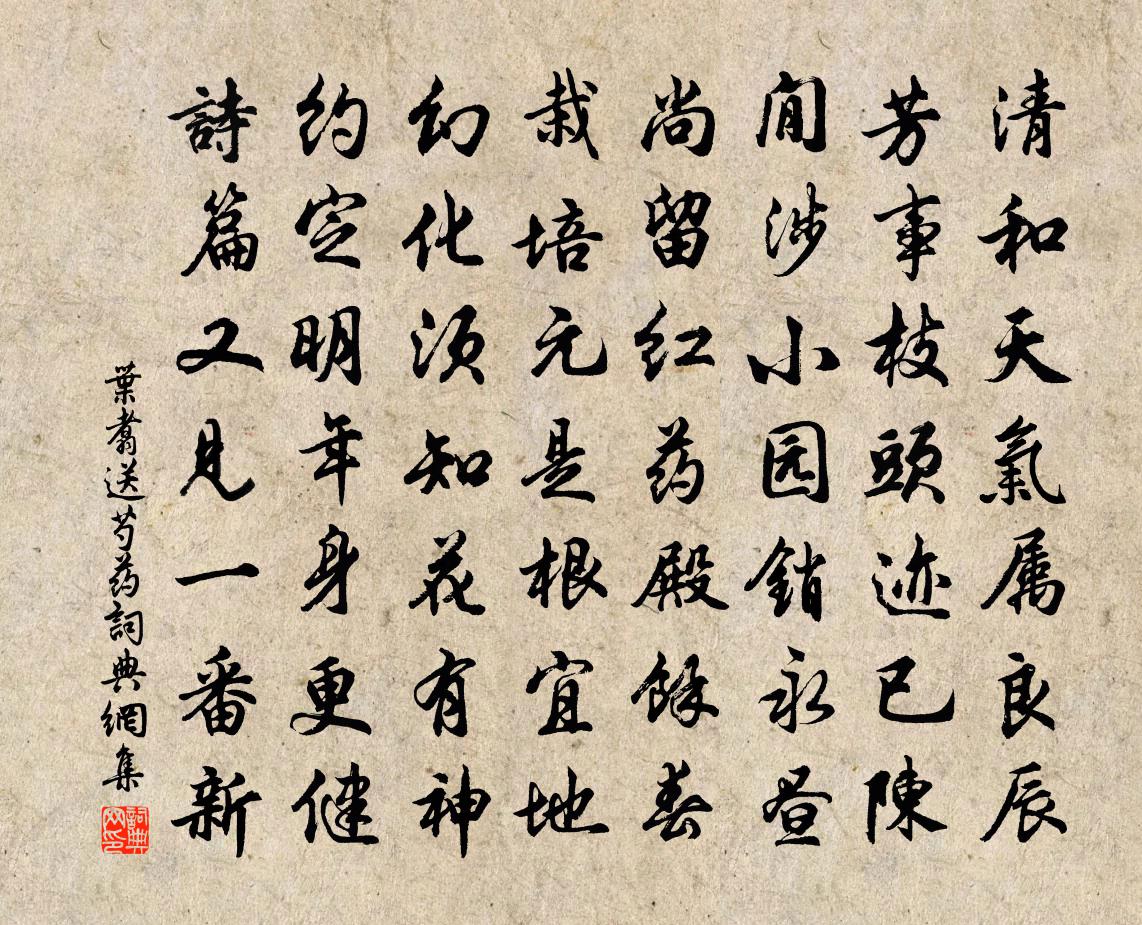 清和天氣属良辰
芳事枝頭迹已陳
閒涉小园銷永昼
尚留红药殿餘春
栽培元是根宜地
幻化须知花有神
约定明年身更健
詩篇又見一番新
葉翥送芍药詞典網集
詞典网印